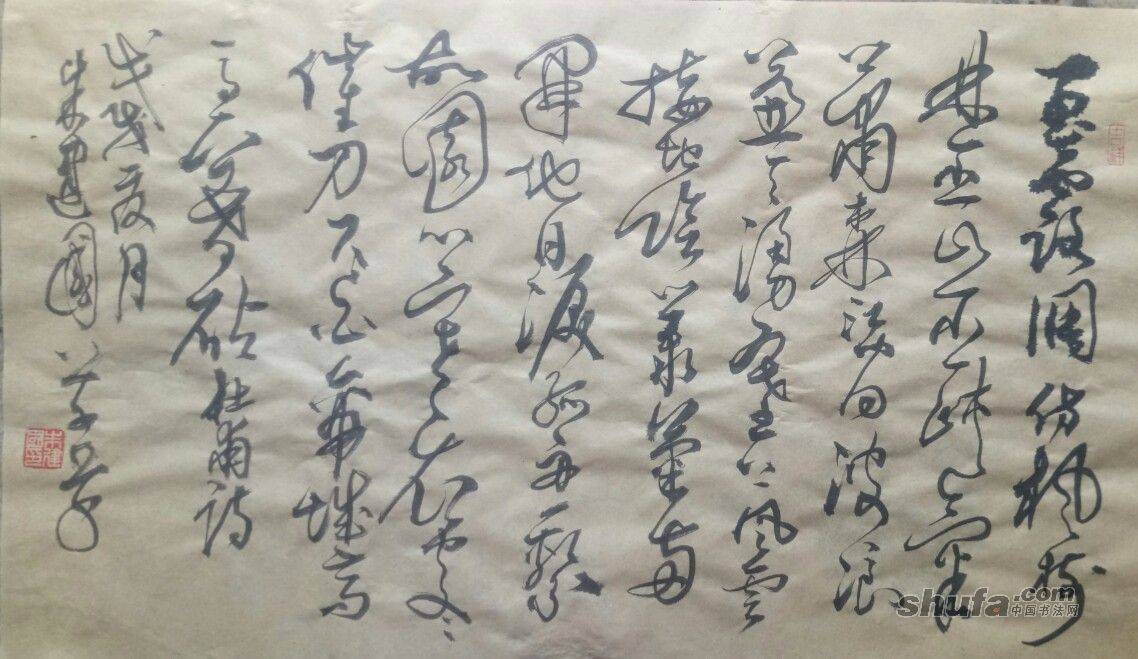 玉露凋傷枫树
林巫山巫峡氣
萧森江间波浪
兼天涌塞上風雲
接地陰丛菊两
開他日淚孤舟一繫
故園心寒衣处々
催刀尺白帝城高
急暮砧杜甫诗
戊戌夏月
朱建國
朱建國印
shufa.com
中国书法网